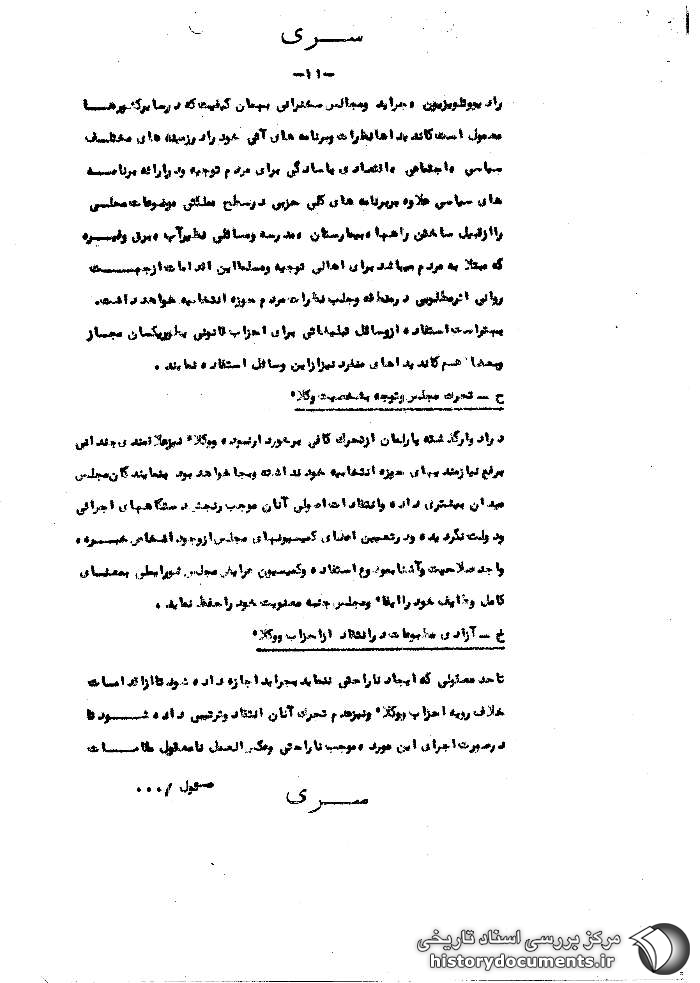 سری
-۱۱-
رادیو تلویزیون و جراید ومجالس سخنرانی بهمان کیفیت که در سایر کشورها
معمول است کاندیداها نظرات وبرنامه های آتی خود را در زمینه های مختلف
سیاسی واجتماعی واقتصادی با سادگی برای مردم توجیه ودر ارائه برنامه
های سیاسی علاوه بر برنامه های کلی حزبی در سطح مملکتی موضوعات محلی
را از قبیل ساختن راهها و بیمارستان و مدرسه وسائلی نظیر آب و برق وغیره
که مبتلا به مردم میباشد برای اهالی توجیه ومسلما این اقدامات از جهت
روانی اثر مطلوبی در منطقه وجلب نظرات مردم حوزه انتخابیه خواهد داشت.
بهتر است استفاده از وسائل تبلیغاتی برای احزاب قانونی بطور یکسان مجاز
وبعدا هم کاندیداهای منفرد نیز از این وسائل استفاده نمایند .
ح - تحرک مجلس وتوجه بشخصیت وکلاء
در ادوار گذشته پارلمان از تحرک کافی برخوردار نبوده ووکلاء نیز علاقمندی چندانی
برفع نیازمندیهای حوزه انتخابیه خود نداشته وبجا خواهد بود بنمایندگان مجلس
میدان بیشتری داده وانتقادات اصولی آنان موجب رنجش دستگاههای اجرائی
ودولت نگردیده ودر تعیین اعضای کمیسیونهای مجلس از وجود اشخاص خبره و
واجد صلاحیت وآشنا بعلوم استفاده وکمیسیون عرایض مجلس شورا بطی بمعنای
کامل وظایف خود را ایفاء ومجلس جنبه معنویت خود را حفظ نماید .
خ - آزادی مطبوعات در انتقاد از احزاب ووکلاء
تا حد معقولی که ایجاد ناراحتی ننماید بجراید اجازه داده شود تا از اقدامات
خلاف رویه احزاب ووکلاء ونیز عدم تحرک آنان انتقاد وترتیبی داده شود تا
در صورت اجرای این مورد موجب ناراحتی وعکس العمل نامعقول مقامات
مسئول /...
سری
مرکز بررسی اسناد تاریخی
historydocuments.ir